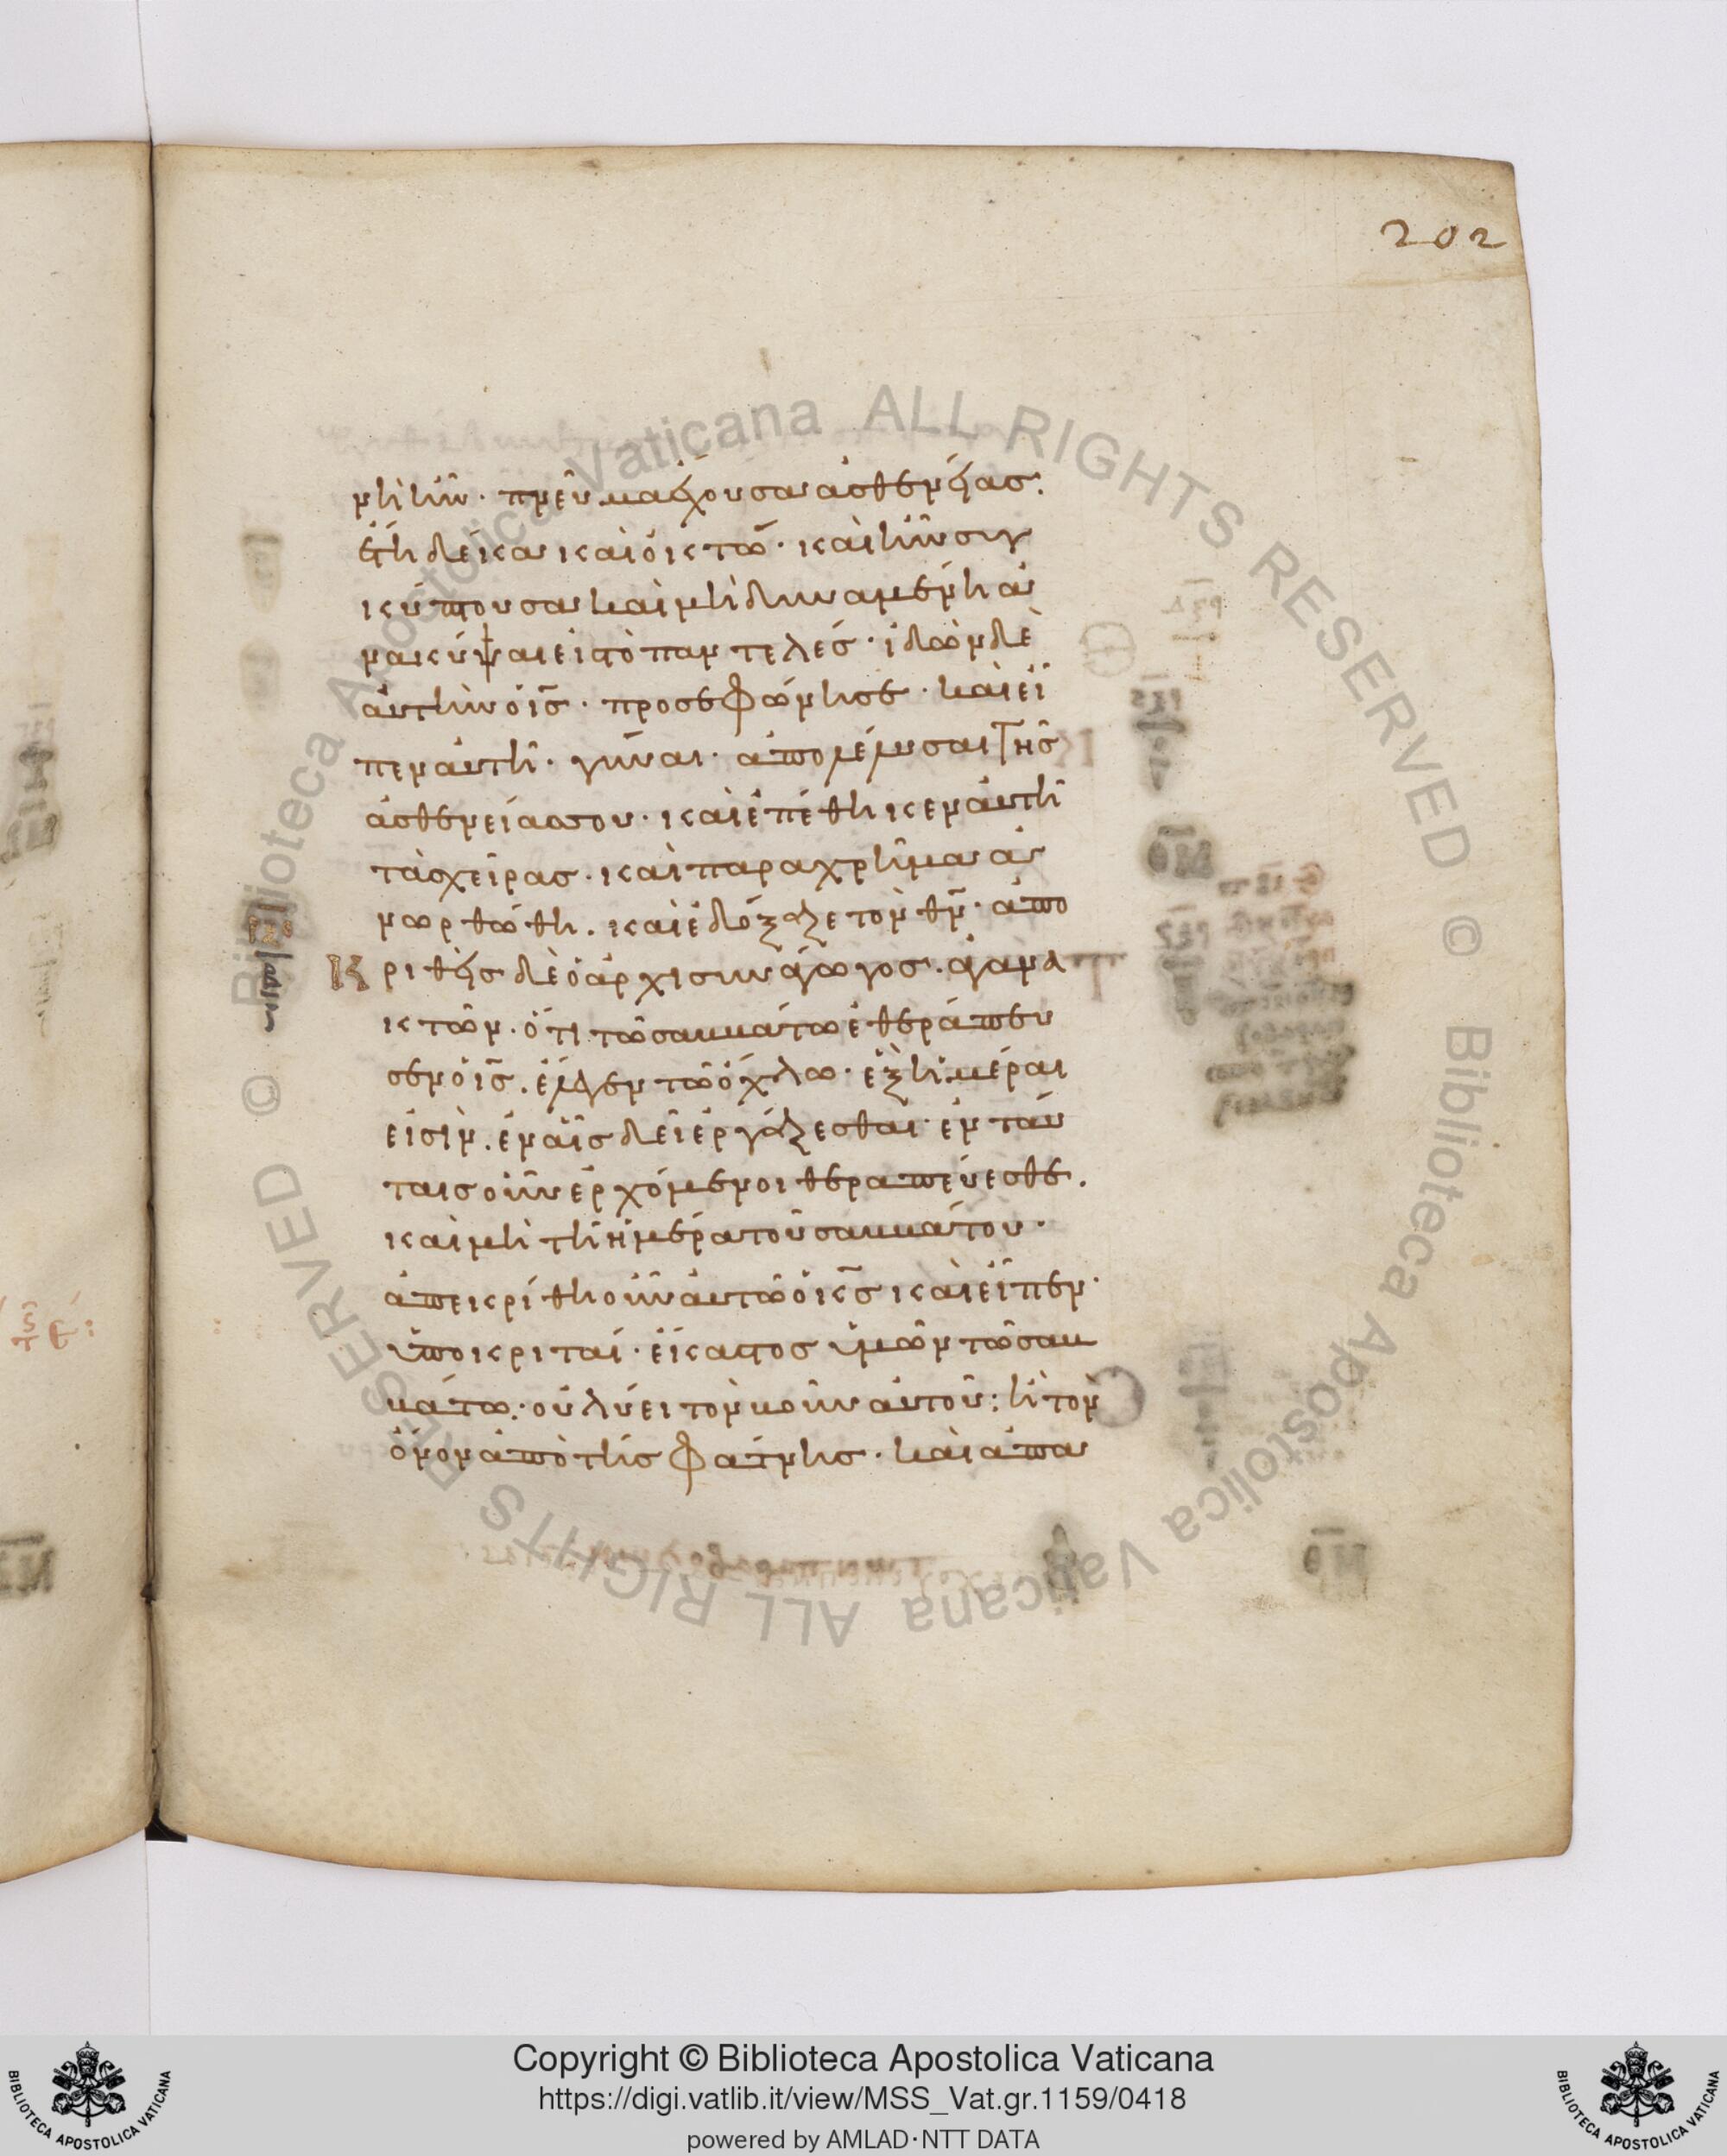 202
νὴ ἦν · πνεῦμα ἔχουσα ἀσθενείας ·
ἔτη δέκα καὶ ὀκτώ · καὶ ἦν συγ
κύπτουσα καὶ μὴ δυναμένη ἀ
νακύψαι εἰς τὸ παντελές · ἰδὼν δὲ
αὐτὴν ὁ ις · προσεφώνησε · καὶ εἶ
πεν αὐτῇ · γύναι · ἀπολέλυσαι τῆς
ἀσθενείας σου · καὶ ἐπέθηκεν αὐτῇ
τὰς χεῖρας · καὶ παραχρῆμα ἀ
νωρθώθη · καὶ ἐδόξαζε τὸν θν · ἀπο
κριθεὶς δὲ ὁ ἀρχισυνάγωγος · ἀγανα
κτῶν · ὅτι τῷ σαββάτῳ ἐθεράπευ
σεν ὁ ις · ἔλεγεν τῷ ὄχλῳ · ἓξ ἡμέραι
εἰσὶν · ἐν αἷς δεῖ ἐργάζεσθαι · ἐν ταύ
ταις οὖν ἐρχόμενοι θεραπεύεσθε ·
καὶ μὴ τῇ ἡμέρα τοῦ σαββάτου ·
ἀπεκρίθη οὖν αὐτῷ ὁ κς καὶ εἶπεν ·
ὑποκριταί · ἕκαστος ὑμῶν τῷ σαβ
βάτω · οὐ λύει τὸν βοῦν αὐτοῦ : ἢ τὸν
ὄνον ἀπὸ τῆς φάτνης · καὶ ἀπα
Copyright © Biblioteca Apostolica Vaticana
https://digi.vatlib.it/view/MSS_Vat.gr.1159/0418
powered by AMLAD·NTT DATA
BIBLIOTECA APOSTOLICA VATICANA
BIBLIOTECA APOSTOLICA VATICANA
Biblioteca Apostolica Vaticana ALL RIGHTS RESERVED ©
Biblioteca Apostolica Vaticana ALL RIGHTS RESERVED ©